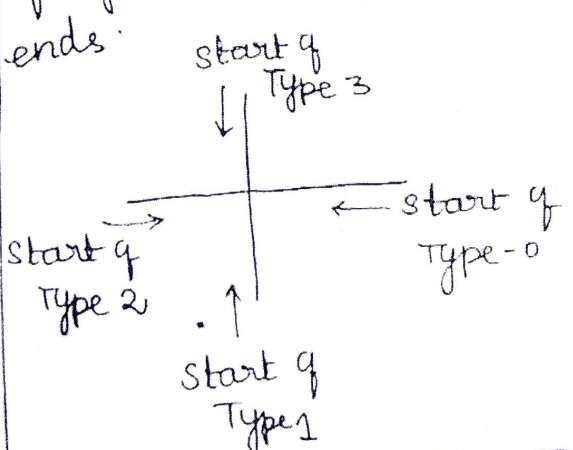 ends.
start of
Type 3
start of
Type-0
start of
Type 2
start of
Type 1